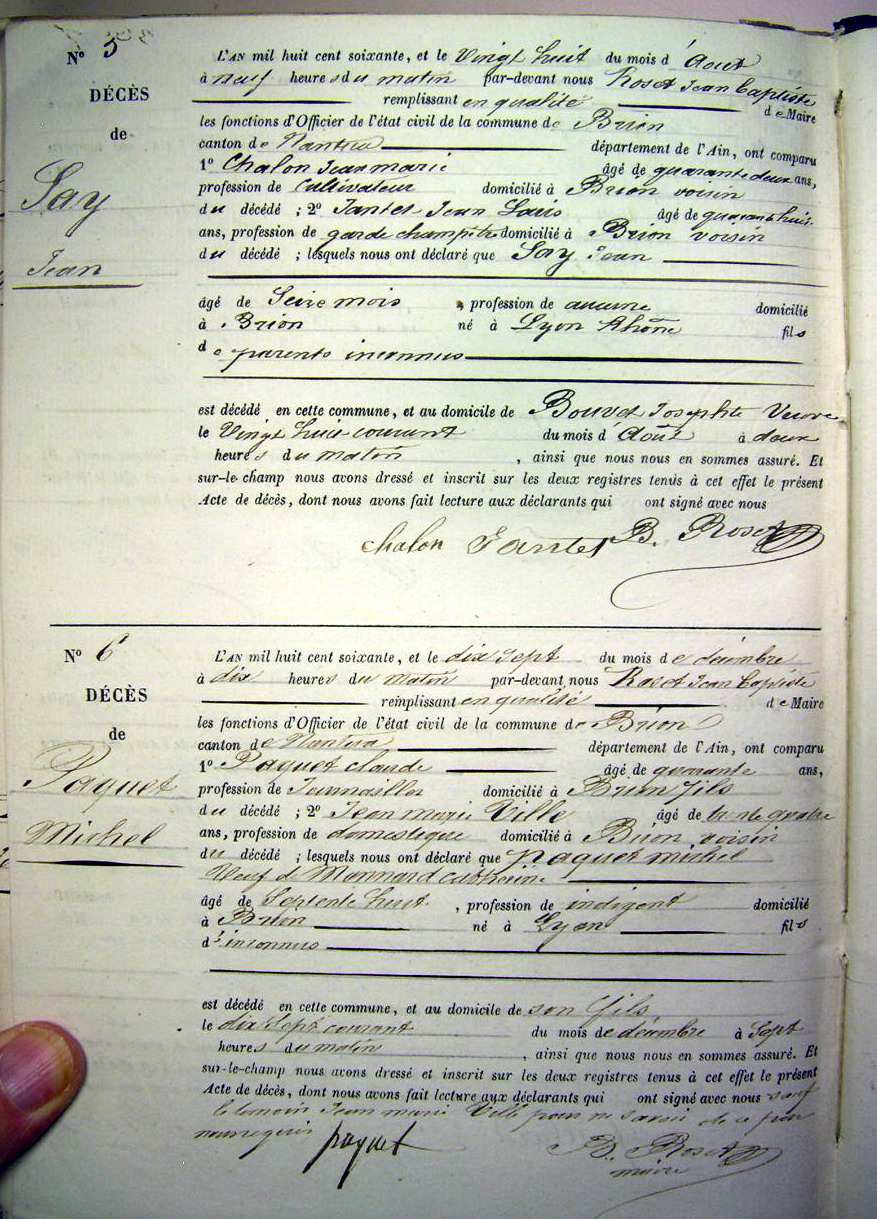 N° 5
DÉCÈS
de
Say
Jean
L'AN mil huit cent soixante, et le Vingt huit du mois d'Aout
à neuf heures du matin par-devant nous Roset Jean Baptiste
remplissant en qualité de Maire
les fonctions d'Officier de l'état civil de la commune de Brion
canton de Nantua département de l'Ain, ont comparu
1° Chalon Jean marie âgé de quarante deux ans,
profession de cultivateur domicilié à Brion voisin
du décédé ; 2° Tantet Jean Louis âgé de quarante huit
ans, profession de garde champêtre domicilié à Brion voisin
du décédé ; lesquels nous ont déclaré que Say Jean
âgé de Seize mois profession de aucune domicilié
à Brion né à Lyon Rhône fils
de parents inconnus
est décédé en cette commune, et au domicile de Bouvet Josephte Veuve
le Vingt huit courant du mois d'Août à deux
heures du matin , ainsi que nous nous en sommes assuré. Et
sur-le-champ nous avons dressé et inscrit sur les deux registres tenus à cet effet le présent
Acte de décès, dont nous avons fait lecture aux déclarants qui ont signé avec nous
chalon Tantet B. Roset
N° 6
DÉCÈS
de
Paquet
Michel
L'AN mil huit cent soixante, et le dix Sept du mois de décembre
à dix heures du matin par-devant nous Roset Jean Baptiste
remplissant en qualité de Maire
les fonctions d'Officier de l'état civil de la commune de Brion
canton de Nantua département de l'Ain, ont comparu
1° Paquet claude âgé de quarante ans,
profession de Journallier domicilié à Brion fils
du décédé ; 2° Jean marie Ville âgé de trente quatre
ans, profession de domestique domicilié à Brion voisin
du décédé ; lesquels nous ont déclaré que Paquet michel
Veuf de Monnard catherine
âgé de Septente huit , profession de indigent domicilié
à Brion né à Lyon fils
d'inconnus
est décédé en cette commune, et au domicile de son fils
le dix Sept courant du mois de décembre à Sept
heures du matin , ainsi que nous nous en sommes assuré. Et
sur-le-champ nous avons dressé et inscrit sur les deux registres tenus à cet effet le présent
Acte de décès, dont nous avons fait lecture aux déclarants qui ont signé avec nous sauf
le temoin Jean marie Ville pour ne savoir de ce
paquet B. Roset
maire